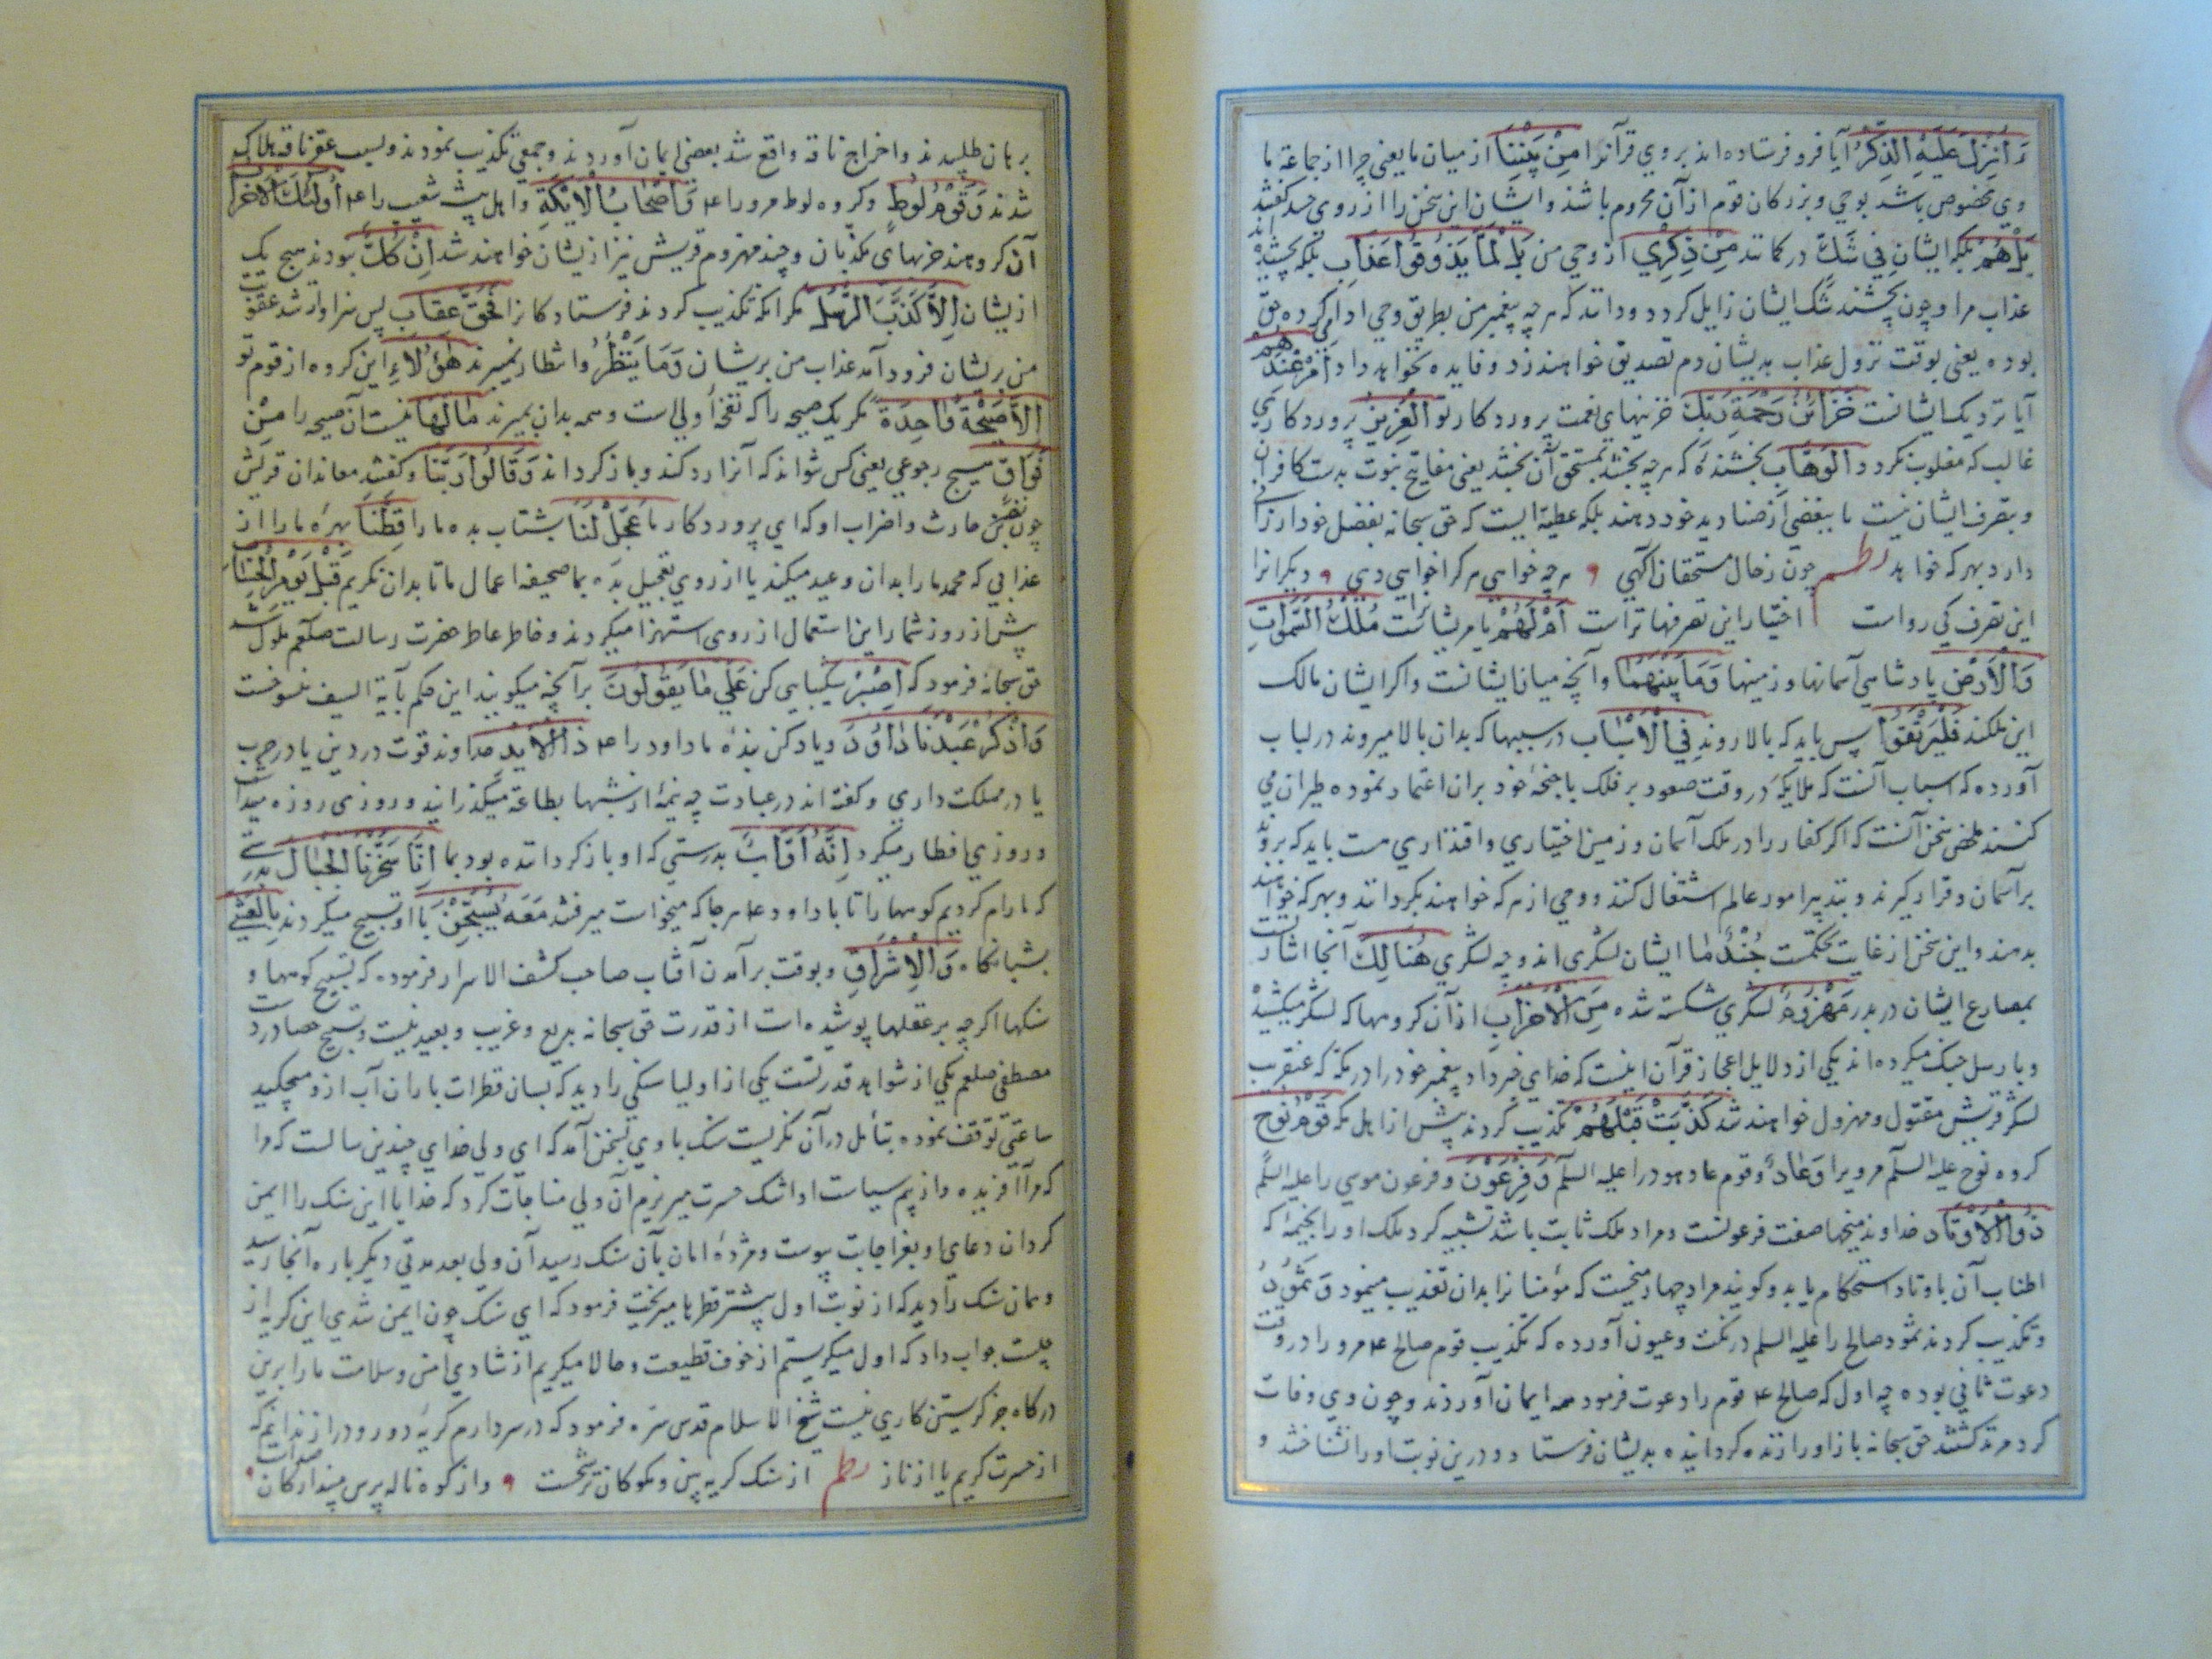 ءَاُنْزِلَ عَلَيْهِ الذِّكْرُ آيا فرو فرستاده اند بروي قرآنرا مِنْ بَيْنِنَا از ميان ما يعني چرا از جماعة ما
وي مخصوص باشد بوحي و بزركان قوم از آن محروم باشند و ايشان اين سخن را از روي حسد كفتند
بَلْ هُمْ بلكه ايشان فِي شَكٍّ در كمانند مِنْ ذِكْرِي از وحي من بَلْ لَمَّا يَذُوقُوا عَذَابِ بلكه نچشيده اند
عذاب مرا و چون بچشند شك ايشان زايل كردد و دانند كه هر چه پيغمبر من بطريق وحي ادا مي كرده حق
بوده يعني بوقت نزول عذاب بديشان دم تصديق خواهند زد و فايده نخواهد داد اَمْ عِنْدَهُمْ
آيا نزديك ايشانست خَزَائِنُ رَحْمَةِ رَبِّكَ خزينهاي نعمت پروردكار تو الْعَزِيزِ پروردكاري
غالب كه مغلوب نكردد الْوَهَّابِ بخشنده كه هر چه بخشد بمستحق آن بخشد يعني مفاتيح نبوت بدست كافران
و بتصرف ايشان نيست تا ببعضي از صناديد خود دهند بلكه عطيه ايست كه حق سبحانه بفضل خود ارزاني
دارد بهر كه خواهد نظم چون ز حال مستحقان آكهي ٩ هر چه خواهي هر كرا خواهي دهي ٩ ديكرانرا
اين تصرف كي رواست اختيار اين تصرفها تراست اَمْ لَهُمْ يا مر ايشانراست مُلْكُ السَّمٰوَاتِ
وَالْاَرْضِ پادشاهي آسمانها و زمينها وَمَا بَيْنَهُمَا و آنچه ميان ايشانست و اكر ايشان مالك
اين ملكند فَلْيَرْتَقُوا پس بايد كه بالا روند فِي الْاَسْبَابِ در سببها كه بدان بالا ميروند در لباب
آورده كه اسباب آنست كه ملايكه در وقت صعود بر فلك باجنحه خود بران اعتماد نموده طيران مي
كنند ملخص سخن آنست كه اكر كفار را در ملك آسمان و زمين اختياري و اقتداري هست بايد كه بروند
بر آسمان و قرار كيرند و بتدبير امور عالم اشتغال كنند و وحي از هر كه خواهند بكردانند و بهر كه خواهند
بدهند و اين سخن از غايت تحكمست جُنْدٌ مَا ايشان لشكري اند و چه لشكري هُنَالِكَ آنجا اشارتست
بمصارع ايشان در بدر مَهْزُومٌ لشكري شكسته شده مِنَ الْاَحْزَابِ از آن كروهها كه لشكر ميكشيدند
و با رسل جنك ميكرده اند يكي از دلايل اعجاز قرآن اينست كه خداي خبر داد پيغمبر خود را در مكه كه عنقريب
لشكر قريش مقتول و مهزول خواهند شد كَذَّبَتْ قَبْلَهُمْ تكذيب كردند پيش از اهل مكه قَوْمُ نُوحٍ
كروه نوح عليه السلم مر ويرا وَعَادٌ و قوم عاد هود را عليه السلم وَفِرْعَوْنَ و فرعون موسي را عليه السلم
ذُو الْاَوْتَادِ خداوند ميخها صفت فرعونست و مراد ملك ثابت باشد تشبيه كرد ملك او را بخيمه كه
اطناب آن باوتاد استحكام يابد و كويند مراد چهار ميخست كه مؤمنانرا بدان تعذيب مينمود وَثَمُودُ
و تكذيب كردند ثمود صالح را عليه السلم در نكت و عيون آورده كه تكذيب قوم صالح ع مرو را در وقت
دعوت ثاني بوده چه اول كه صالح ع قوم را دعوت فرمود همه ايمان آوردند و چون وي وفات
كرد مرتد كشتند حق سبحانه باز او را زنده كردانيده بديشان فرستاد و درين نوبت او را نشناختند و
برهان طلبيدند و اخراج ناقه واقع شد بعضي ايمان آوردند و جمعي تكذيب نمودند و بسبب عقر ناقه هلاك
شدند وَقَوْمُ لُوطٍ و كروه لوط مرو را ع وَاَصْحَابُ الْاَيْكَةِ و اهل بيشه شعيب را ع اُولٰئِكَ الْاَحْزَابُ
آن كروهند خزبهاي مكذبان و جند مهزوم قريش نيز ازيشان خواهند شد اِنْ كُلٌّ نبودند هيج يك
ازيشان اِلَّا كَذَّبَ الرُّسُلَ مكر انكه تكذيب كردند فرستادكانرا فَحَقَّ عِقَابِ پس سزاوار شد عقوبت
من بريشان فرود آمد عذاب من بريشان وَمَا يَنْظُرُ و انتظار نميبرند هٰؤُلَاءِ اين كروه از قوم تو
اِلَّا صَيْحَةً وَاحِدَةً مكر يك صيحه را كه نفخه اولي است و همه بدان بميرند مَا لَهَا نيست آن صيحه را مِنْ
فَوَاقٍ هيج رجوعي يعني كس نتواند كه آنرا رد كند و باز كرداند وَقَالُوا رَبَّنَا و كفتند معاندان قريش
چون نضر بن حارث و اضراب او كه اي پروردكار ما عَجِّلْ لَنَا بشتاب بده ما را قِطَّنَا بهره ما را از
عذابي كه محمد ما را بدان وعيد ميكند يا از روي تعجيل بده بما صحيفه اعمال ما تا بدان نكريم قَبْلَ يَوْمِ الْحِسَابِ
پيش از روز شمار اين استعجال از روي استهزا ميكردند و خاطر عاطر حضرت رسالت صلعم ملول شد
حق سبحانه فرمود كه اِصْبِرْ شكيبايي كن عَلٰي مَا يَقُولُونَ بر آنچه ميكويند اين حكم بآية السيف منسوخست
وَاذْكُرْ عَبْدَنَا دَاوُدَ و ياد كن بنده ما داود را ع ذَا الْاَيْدِ خداوند قوت در دين يا در حرب
يا در مملكت داري و كفته اند در عبادت چه نيمه از شبها بطاعة ميكذرانيد و روزي روزه ميداشت
و روزي افطار ميكرد اِنَّهُ اَوَّابٌ بدرستي كه او باز كردانده بود بما اِنَّا سَخَّرْنَا الْجِبَالَ بدرستي
كه ما رام كرديم كوهها را تا با داود ع هر جا كه ميخواست ميرفتند مَعَهُ يُسَبِّحْنَ با او تسبيح ميكردند بِالْعَشِيِّ
بشبانكاه وَالْاِشْرَاقِ و بوقت برآمدن آفتاب صاحب كشف الاسرار فرموده كه تسبيح كوهها و
سنكها اكر چه بر عقلها پوشيده است از قدرت حق سبحانه بديع و غريب و بعيد نيست و تسبيح حصا در دست
مصطفي صلعم يكي از شواهد قدرتست يكي از اوليا سنكي را ديد كه بسان قطرات باران آب ازو ميچكيد
ساعتي توقف نموده بتأمل در آن نكريست سنك با وي بسخن آمد كه اي ولي خداي چندين سالست كه خدا
كه مرا آفريده و از بيم سياست او اشك حسرت ميريزم آن ولي مناجات كرد كه خدايا اين سنك را ايمن
كردان دعاي او بعز اجابت پيوست و مژده امان بآن سنك رسيد آن ولي بعد مدتي ديكر باره آنجا رسيد
و همان سنك را ديد كه از نوبت اول بيشتر قطرها ميريخت فرمود كه اي سنك چون ايمن شدي اين كريه از
چيست جواب داد كه اول ميكريستم از خوف قطيعت و حالا ميكريم از شادي امن و سلامت ما را برين
دركاه جز كريستن كاري نيست شيخ الاسلام قدس سره فرمود كه در سر دارم كريه دور و دراز ندانم كه
از حسرت كريم يا از ناز نظم از سنك كريه بين و مكو كان ترشحست ٩ و از كوه ناله پرس مپندار كان صداست ٩